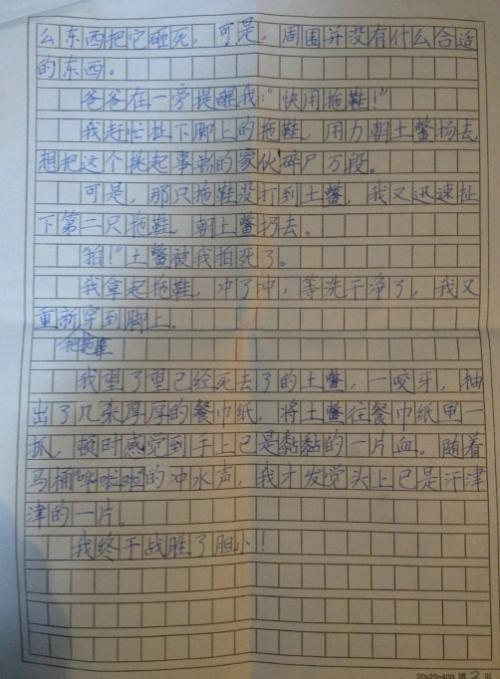 么东西把它砸死，可是，周围并没有什么合适
的东西。
爸爸在一旁提醒我："快用拖鞋！"
我赶忙扯下脚上的拖鞋，用力朝土鳖扬去
想把这个挑起事端的家伙碎尸万段。
可是，那只拖鞋没打到土鳖，我又迅速扯
下第二只拖鞋，朝土鳖扔去。
"拍！"土鳖被我拍死了。
我拿起拖鞋，冲了冲，等洗干净了，我又
重新穿到脚上。
把拖鞋
我望了望已经死去了的土鳖，一咬牙，抽
出了几张厚厚的餐巾纸，将土鳖往餐巾纸里一
抓，顿时感觉到手上已是黏黏的一片血。随着
马桶"哗啦啦"的冲水声，我才发觉头上已是汗津
津的一片。
我终于战胜了胆小！
20×20=400 第3页